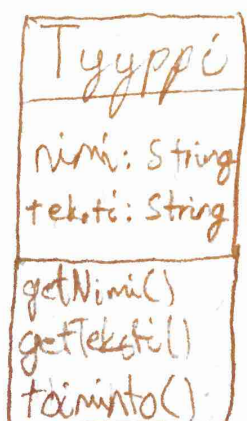 Tyyppi
nimi: String
teksti: String
getNimi()
getTeksti()
toiminto()